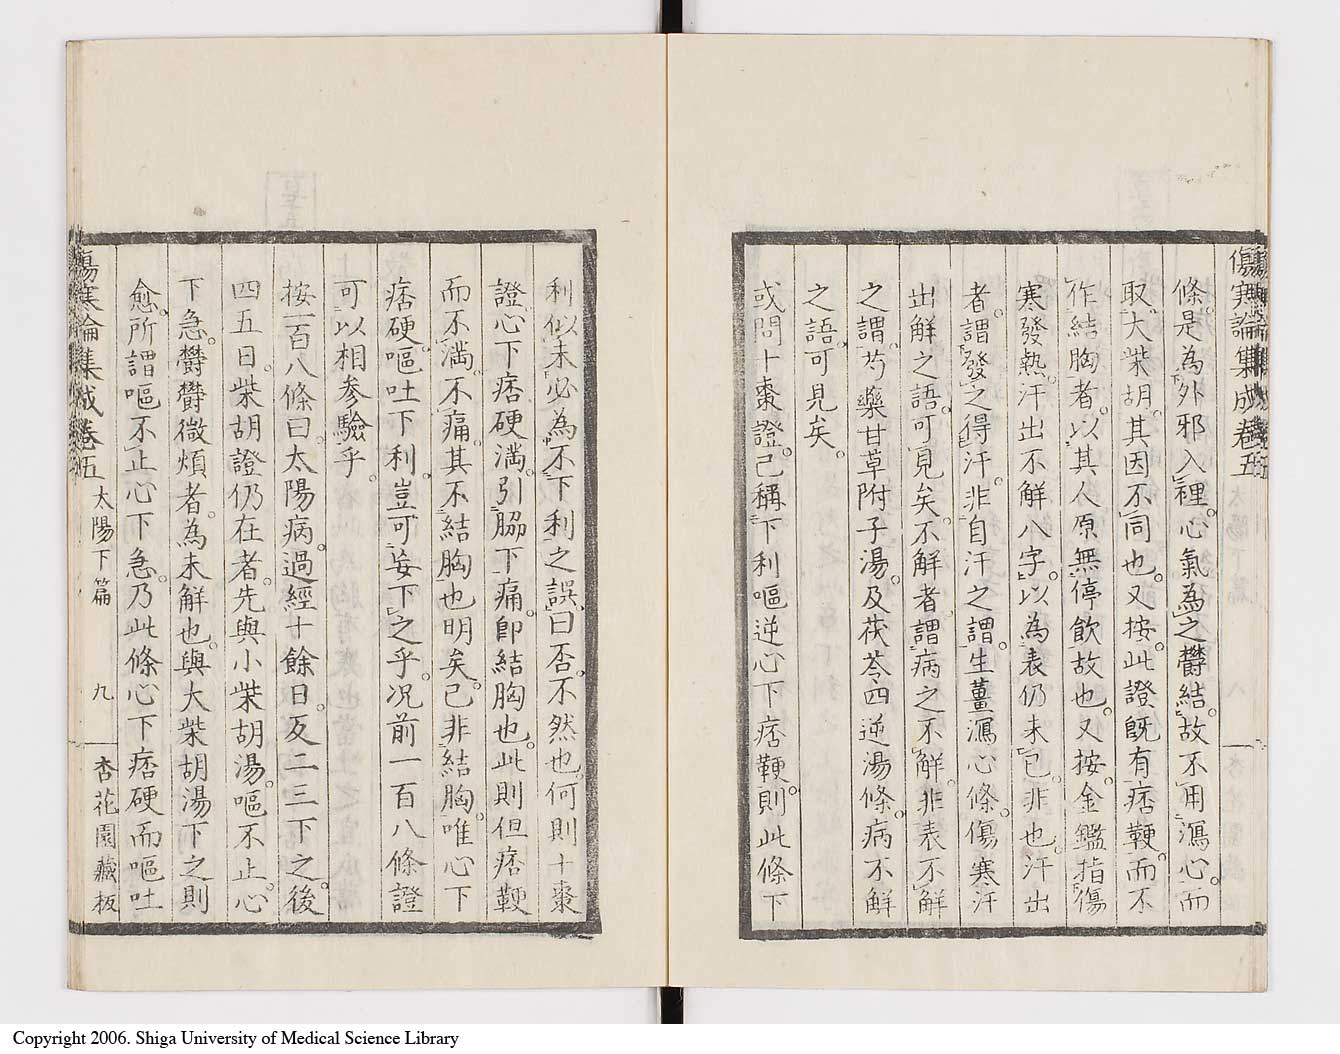 傷寒論集成卷五
條。是為外邪入裡。心氣為之鬱結。故不用瀉心。而
取大柴胡。其因不同也。又按。此證既有痞鞕。而不
作結胸者。以其人原無停飲故也。又按。金鑑指傷
寒發熱。汗出不解八字。以為表仍未已。非也。汗出
者。謂發之得汗。非自汗之謂。生薑瀉心條。傷寒汗
出解之語。可見矣。不解者。謂病之不解。非表不解
之謂。芍藥甘草附子湯。及茯苓四逆湯條。病不解
之語。可見矣。
或問十棗證。已稱下利嘔逆心下痞鞕。則此條下
利似未必為不下利之誤。曰否。不然也。何則十棗
證。心下痞硬滿。引脇下痛。卽結胸也。此則但痞鞕
而不滿。不痛。其不結胸也明矣。已非結胸。唯心下
痞硬。嘔吐下利。豈可妄下之乎。况前一百八條證
可以相參驗乎。
按一百八條曰。太陽病。過經十餘日。反二三下之。後
四五日。柴胡證仍在者。先與小柴胡湯。嘔不止。心
下急。鬱鬱微煩者。為未解也。與大柴胡湯下之則
愈。所謂嘔不止心下急。乃此條心下痞硬而嘔吐
傷寒論集成卷五 太陽下篇 九 杏花園藏板